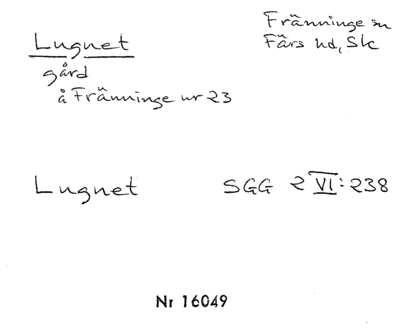 Lugnet
gård
å Fränninge nr 23
Fränninge sn
Färs hd, Sk
Lugnet SGG 2 VI: 238
Nr 16049